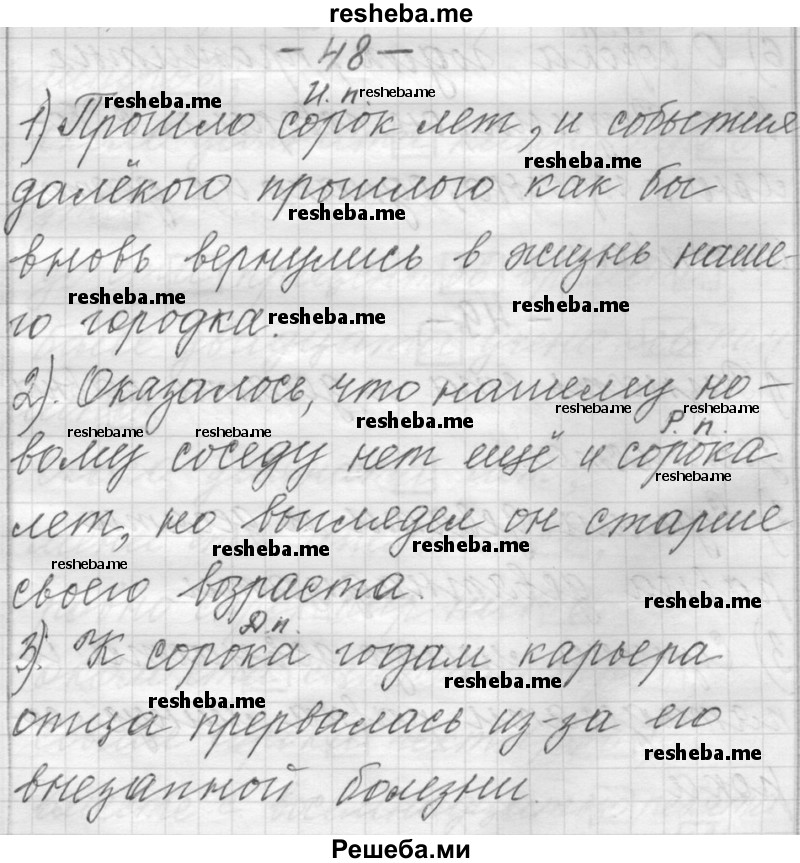 resheba.me
- 48 -
И. п. resheba.me
resheba.me
1) Прошло сорок лет, и события
resheba.me
далёкого прошлого как бы
resheba.me
вновь вернулись в жизнь наше-
resheba.me resheba.me
го городка. resheba.me
2). Оказалось, что нашему но-
resheba.me resheba.me resheba.me
resheba.me resheba.me Р. п.
вому соседу нет ещё и сорока
resheba.me
лет, но выглядел он старше
resheba.me resheba.me
resheba.me
своего возраста.
resheba.me
Д. п.
3). К сорока годам карьера
resheba.me
resheba.me
отца прервалась из-за его
resheba.me
внезапной болезни.
Решеба.ми